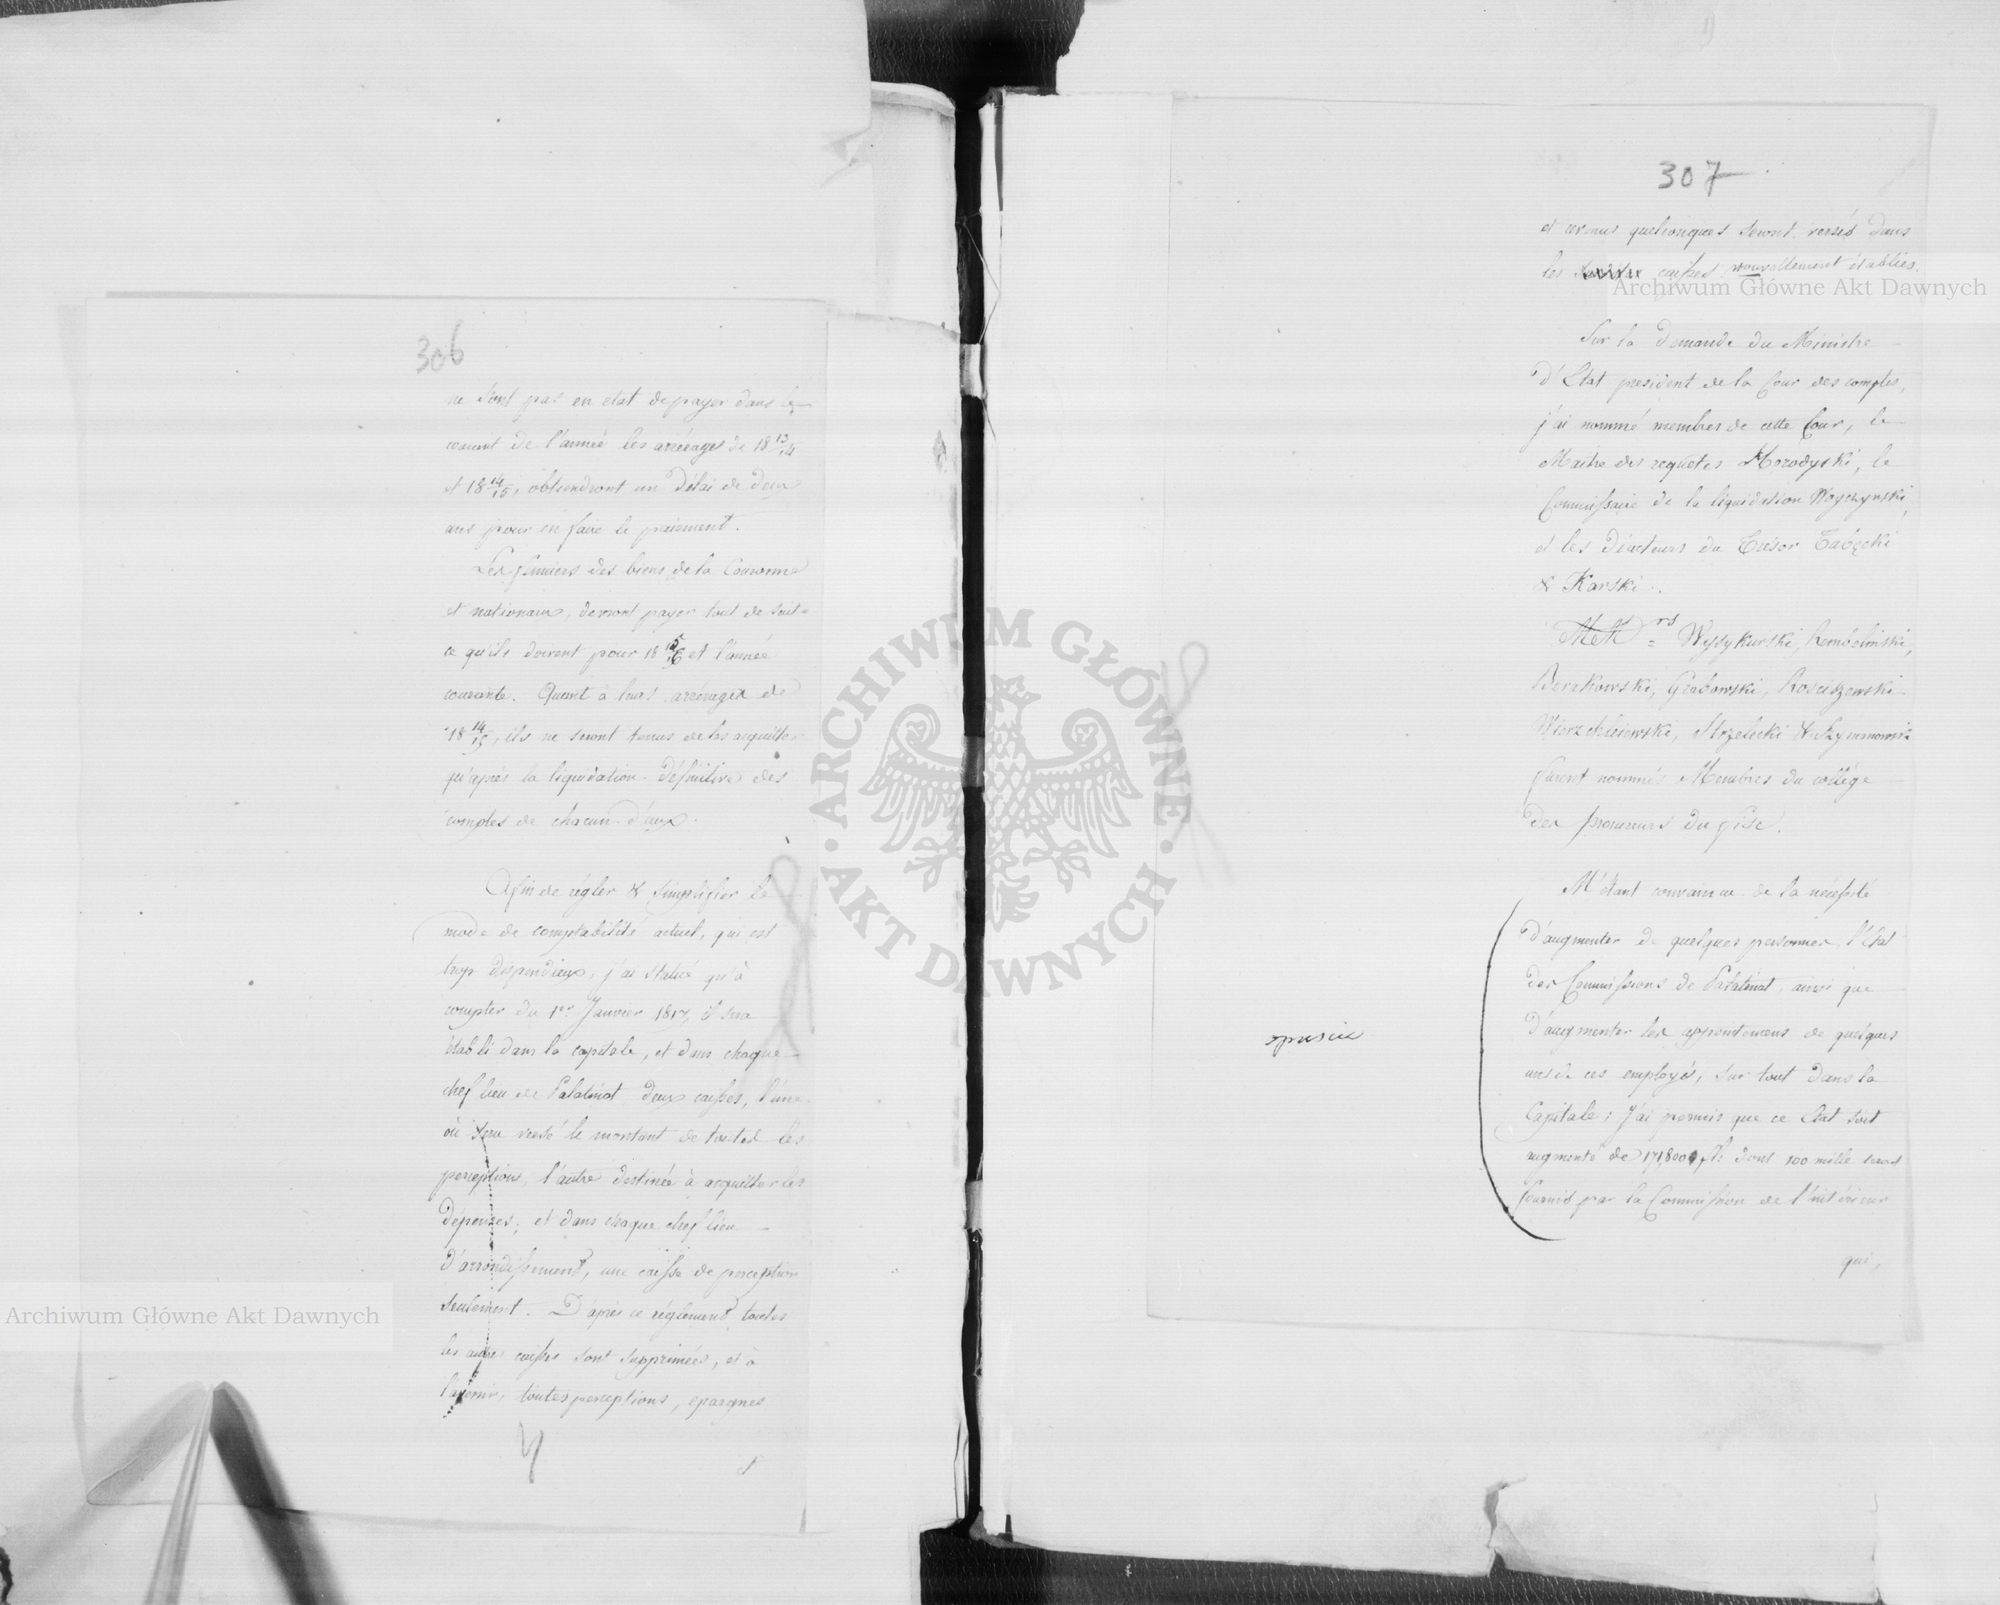 306
ne sont pas en état de payer dans le
courant de l'année les arrérages de 18 13/14
et 18 14/15, obtiendront un délai de deux
ans pour en faire le paiement.
Les fermiers des biens de la Couronne
et nationaux, devront payer tout de suite
ce qu'ils doivent pour 18 15/16 et l'année
courante. Quant à leurs arrérages de
18 14/15, ils ne seront tenus de les acquitter
qu'après la liquidation définitive des
comptes de chacun d'eux.
Afin de régler & simplifier le
mode de comptabilité actuel, qui est
trop dispendieux, j'ai statué qu'à
compter du 1er Janvier 1817, il sera
établi dans la capitale, et dans chaque
chef lieu de Palatinat deux caisses, l'une
où sera versé le montant de toutes les
perceptions, l'autre destinée à acquitter les
dépenses; et dans chaque chef lieu
d'arrondissement, une caisse de perception
seulement. D'après ce réglement toutes
les autres caisses sont supprimées, et à
l'avenir, toutes perceptions, epargnes
et
307
et quelconques seront versés dans
les caisses nouvellement établies.
Sur la demande du Ministre
d'Etat president de la Cour des comptes,
j'ai nommé membres de cette Cour, le
Maitre des requêtes Horodyski, le
Commissaire de la liquidation Woyczynski,
et les Directeurs du Trésor
& Karski.
MM rs = Rembelinski,
Grabowski, Rosciszewski
Wierzchleiewski, Strzelecki &
furent nommés Membres du collége
des procureurs du fisc.
M'étant convaincu de la nécessité
d'augmenter de quelques personnes, l'Etat
des Commissions de Palatinat, ainsi que
d'augmenter les appointemens de quelques
uns de ces employés, sur tout dans la
Capitale; j'ai permis que ce Etat soit
augmenté de 171,800 fl: dont 100 mille seront
fournis par la Commission de l'intérieur
qui,
opuscic
Archiwum Główne Akt Dawnych
Archiwum Główne Akt Dawnych
· ARCHIWUM GŁÓWNE · AKT DAWNYCH